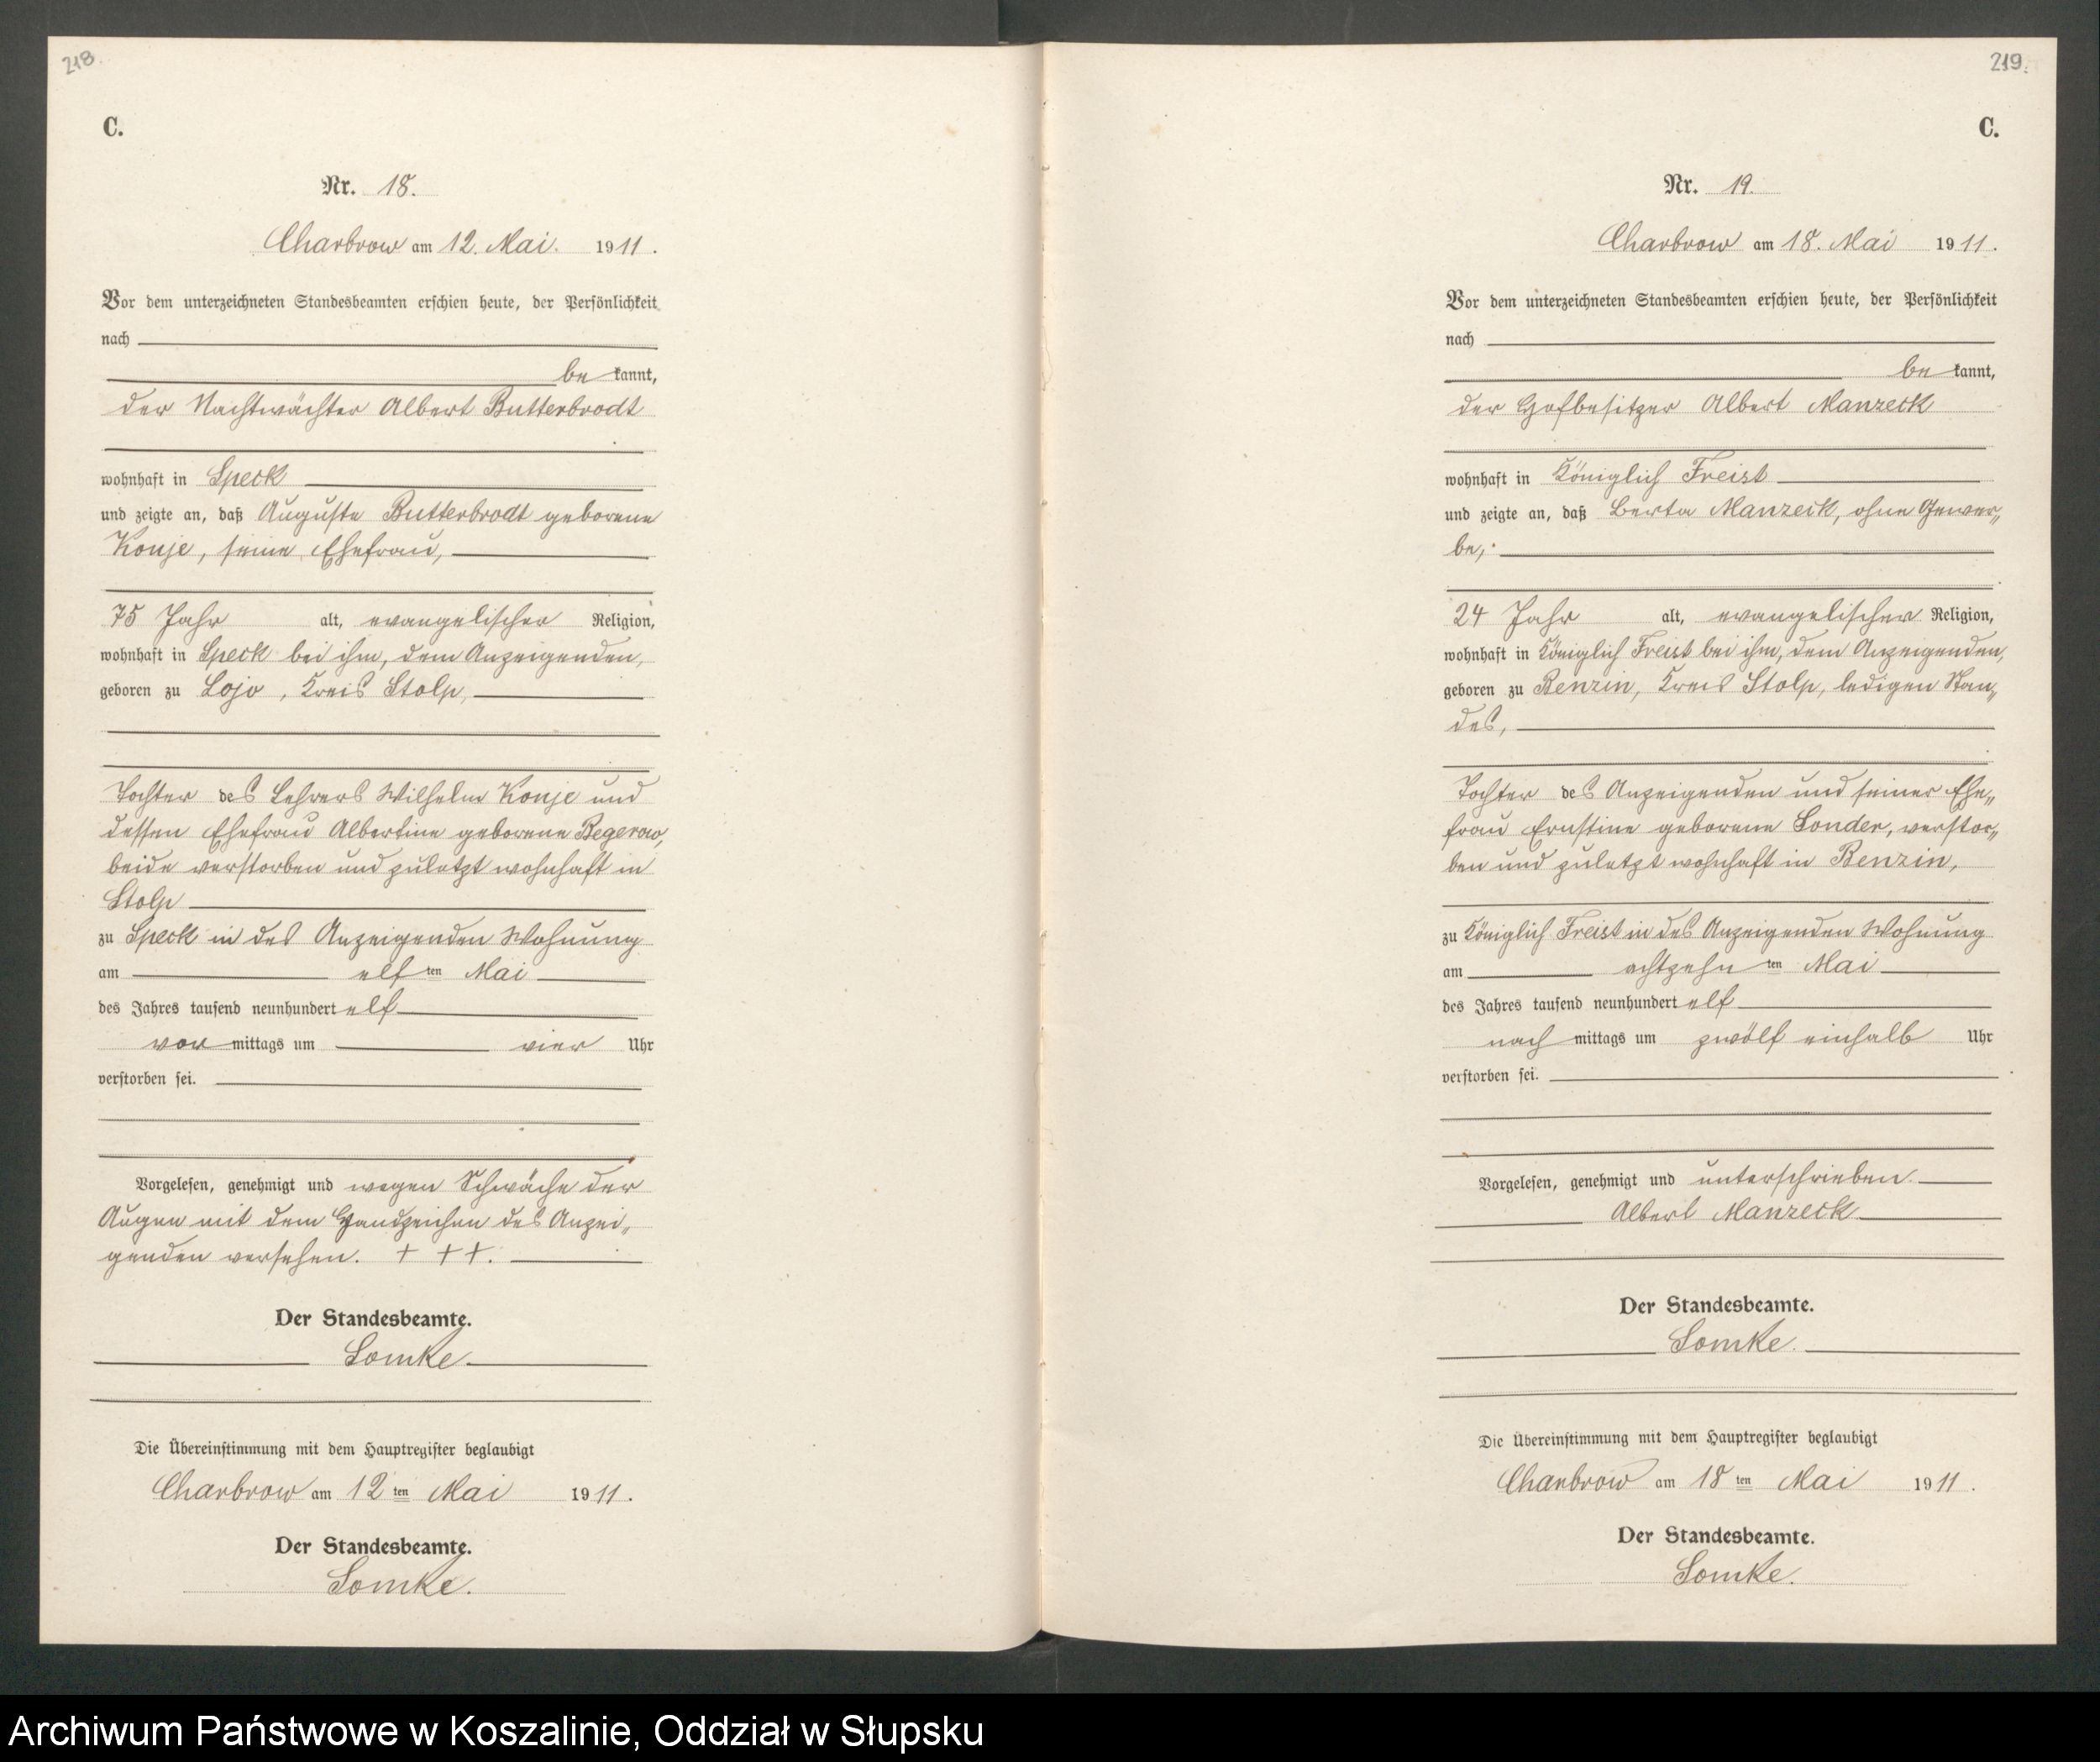 218.
C.
Nr. 18.
Charbrow am 12. Mai. 1911.
Vor dem unterzeichneten Standesbeamten erschien heute, der Persönlichkeit
nach
be kannt,
der Nachtwächter Albert Butterbrodt
wohnhaft in Speck
und zeigte an, daß Auguste Butterbrodt geborene
Konje, seine Ehefrau,
75 Jahr alt, evangelischer Religion,
wohnhaft in Speck bei ihm, dem Anzeigenden,
geboren zu Lojo, Kreis Stolp,
Tochter des Lehrers Wilhelm Konje und
dessen Ehefrau Albertine geborene Begerow,
beide verstorben und zuletzt wohnhaft in
Stolp
zu Speck in des Anzeigenden Wohnung
am elf ten Mai
des Jahres tausend neunhundert elf
vor mittags um vier Uhr
verstorben sei.
Vorgelesen, genehmigt und wegen Schwäche der
Augen mit dem Handzeichen des Anzei„
genden versehen. + + +.
Der Standesbeamte.
Lomke
Die Übereinstimmung mit dem Hauptregister beglaubigt
Charbrow am 12 ten Mai 1911.
Der Standesbeamte.
Lomke.
219.
C.
Nr. 19.
Charbrow am 18. Mai 1911.
Vor dem unterzeichneten Standesbeamten erschien heute, der Persönlichkeit
nach
be kannt,
der Hofbesitzer Albert Manzeck
wohnhaft in Königlich Freist
und zeigte an, daß Berta Manzeck, ohne Gewer„
be,
24 Jahr alt, evangelischer Religion,
wohnhaft in Königlich Freist bei ihm, dem Anzeigenden,
geboren zu Benzin, Kreis Stolp, ledigen Stan„
des,
Tochter des Anzeigenden und seiner Ehe„
frau Ernstine geborene Sonder, verstor„
ben und zuletzt wohnhaft in Benzin,
zu Königlich Freist in des Anzeigenden Wohnung
am achtzehn ten Mai
des Jahres tausend neunhundert elf
nach mittags um zwölf einhalb Uhr
verstorben sei.
Vorgelesen, genehmigt und unterschrieben.
Albert Manzeck
Der Standesbeamte.
Lomke.
Die Übereinstimmung mit dem Hauptregister beglaubigt
Charbrow am 18 ten Mai 1911.
Der Standesbeamte.
Lomke.
Archiwum Państwowe w Koszalinie, Oddział w Słupsku